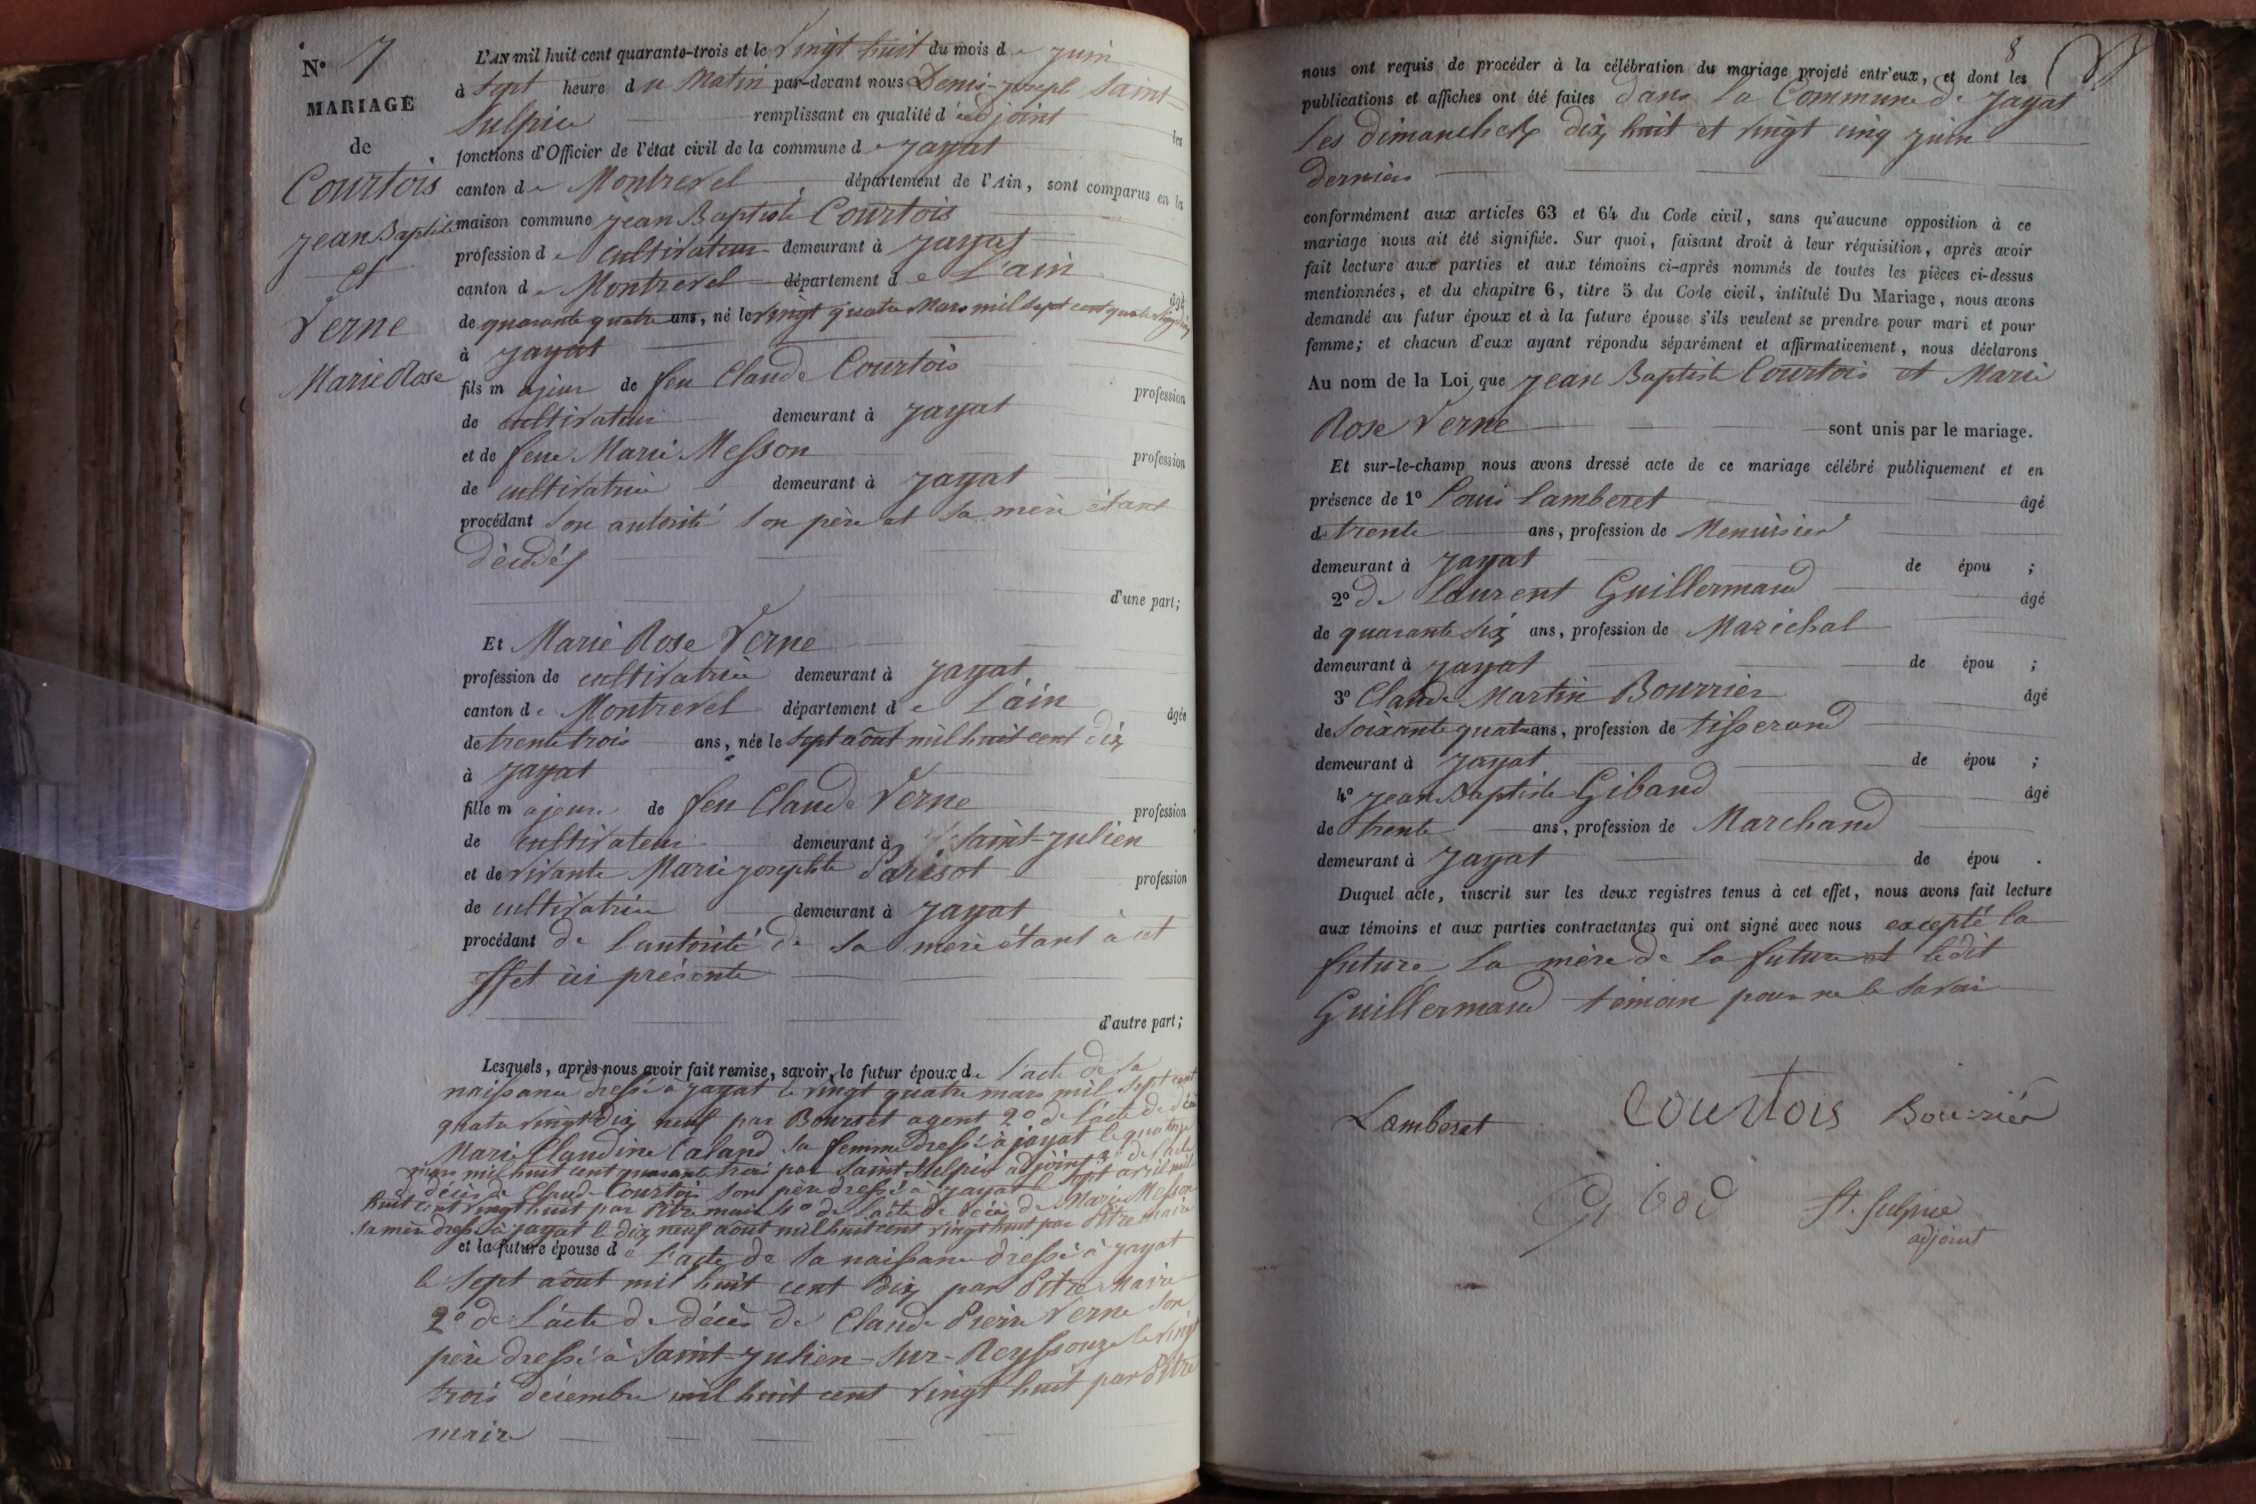 N° 7
MARIAGE
de
Courtois
jean Baptiste
et
Verne
Marie Rose
L'AN mil huit cent quarante-trois et le vingt huit du mois de juin
à sept heure du matin par-devant nous Denis-joseph Saint-
Sulpice remplissant en qualité d'adjoint les
fonctions d'Officier de l'état civil de la commune de jayat
canton de Montrevel département de l'Ain, sont comparus en la
maison commune jean Baptiste Courtois
profession de cultivateur demeurant à jayat
canton de Montrevel département de L'ain âgé
de quarante quatre ans, né le vingt quatre mars mil sept cent quatre vingt dix
à jayat
fils majeur de feu Claude Courtois profession
de cultivateur demeurant à jayat
et de feue Marie Messon profession
de cultivatrice demeurant à jayat
procédant son autorité son père et sa mère étant
décédés
d'une part;
Et Marie Rose Verne
profession de cultivatrice demeurant à jayat
canton de Montrevel département de L'ain âgée
de trente trois ans, née le sept août mil huit cent dix
à jayat
fille majeure de feu Claude Verne profession
de cultivateur demeurant à Saint-julien
et de vivante Marie josephte Parisot profession
de cultivatrice demeurant à jayat
procédant de l'autorité de sa mère étant à cet
effet ici présente
d'autre part;
Lesquels, après nous avoir fait remise, savoir, le futur époux de l'acte de sa
naissance dressé à jayat le vingt quatre mars mil sept cent
quatre vingt dix neuf par Bourset agent 2° de l'acte de décès
Marie Claudine Caland sa femme dressé à jayat le quatorze
mars mil huit cent quarante trois par Saint-Sulpice adjoint 3° de l'acte
de décès de Claude Courtois son père dressé à jayat le sept avril mil
huit cent vingt huit par Pitre maire 4° de l'acte de décès de Marie Messon
sa mère dressé à jayat le dix neuf août mil huit cent vingt huit par Pitre maire
et la future épouse de l'acte de sa naissance dressé à jayat
le sept août mil huit cent dix par Pitre Maire
2° de l'acte de décès de Claude Pierre Verne son
père dressé à Saint-julien-sur-Reyssouze le vingt
trois décembre mil huit cent vingt huit par Pitre
maire
8
nous ont requis de procéder à la célébration du mariage projeté entr'eux, et dont les
publications et affiches ont été faites dans la Commune de jayat
les dimanches dix huit et vingt cinq juin
derniers
conformément aux articles 63 et 64 du Code civil, sans qu'aucune opposition à ce
mariage nous ait été signifiée. Sur quoi, faisant droit à leur réquisition, après avoir
fait lecture aux parties et aux témoins ci-après nommés de toutes les pièces ci-dessus
mentionnées, et du chapitre 6, titre 5 du Code civil, intitulé Du Mariage, nous avons
demandé au futur époux et à la future épouse s'ils veulent se prendre pour mari et pour
femme; et chacun d'eux ayant répondu séparément et affirmativement, nous déclarons
Au nom de la Loi, que jean Baptiste Courtois et Marie
Rose Verne sont unis par le mariage.
Et sur-le-champ nous avons dressé acte de ce mariage célébré publiquement et en
présence de 1° Louis Lamberet âgé
de trente ans, profession de Menuisier
demeurant à jayat de épou ;
2° de Laurent Guillermaud âgé
de quarante six ans, profession de Maréchal
demeurant à jayat de épou ;
3° Claude Martin Bourrier âgé
de soixante quatre ans, profession de tisserand
demeurant à jayat de épou ;
4° jean Baptiste Gibaud âgé
de trente ans, profession de Marchand
demeurant à jayat de épou .
Duquel acte, inscrit sur les deux registres tenus à cet effet, nous avons fait lecture
aux témoins et aux parties contractantes qui ont signé avec nous excepté la
future la mère de la future et ledit
Guillermaud témoin pour ne le savoir
Lamberet Courtois Bourrier
Gibod St. Sulpice
adjoint